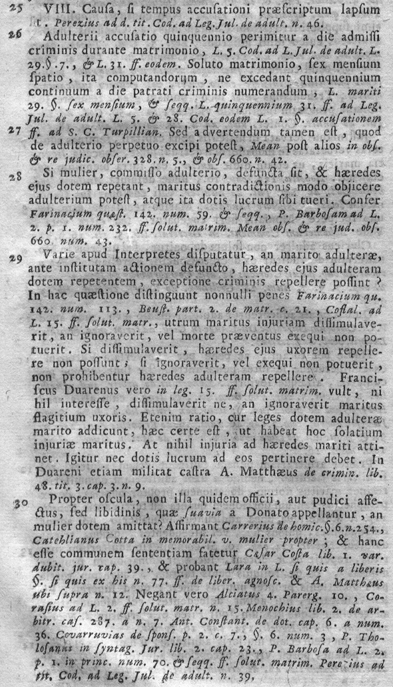 25 VIII. Causa, si tempus accusationi præscriptum lapsum
sit. Perezius ad d. tit. Cod. ad Leg. Jul. de adult. n. 46.
26 Adulterii accusatio quinquennio perimitur a die admissi
criminis durante matrimonio, L. 5. Cod. ad L. Jul. de adult. L.
29. §. 7., & L. 31. ff. eodem. Soluto matrimonio, sex mensium
spatio, ita computandorum, ne excedant quinquennium
continuum a die patrati criminis numerandum, L. mariti
29. §. sex mensium, & seqq. L. quinquennium 31. ff. ad Leg.
Jul. de adult. L. 5. & 28. Cod. eodem L. 1. §. accusationem
27 ff. ad S. C. Turpillian. Sed advertendum tamen est, quod
de adulterio perpetuo excipi potest, Mean post alios in obs.
& re judic. obser. 328. n. 5., & obs. 660. n. 42.
28 Si mulier, commisso adulterio, defuncta sit, & hæredes
ejus dotem repetant, maritus contradictionis modo objicere
adulterium potest, atque ita dotis lucrum sibi tueri. Confer
Farinacium quæst. 142. num. 59. & seqq., P. Barbosam ad L.
2. p. 1. num. 232. ff. solut. matrim. Mean obs. & re jud. obs.
660. num. 43.
29 Varie apud Interpretes disputatur, an marito adulteræ,
ante institutam actionem defuncto, hæredes ejus adulteram
dotem repetentem, exceptione criminis repellere possint?
In hac quæstione distinguunt nonnulli penes Farinacium qu.
142. num. 113., Beust. part. 2. de matr. c. 21., Costal. ad
L. 15. ff. solut. matr., utrum maritus injuriam dissimulave-
rit, an ignoraverit, vel morte præventus exequi non po-
tuerit. Si dissimulaverit, hæredes ejus uxorem repelle-
re non possunt; si ignoraverit, vel exequi non potuerit,
non prohibentur hæredes adulteram repellere. Franci-
scus Duarenus vero in leg. 15. ff. solut. matrim. vult, ni
hil interesse, dissimulaverit ne, an ignoraverit maritus
flagitium uxoris. Etenim ratio, cur leges dotem adulteræ
marito addicunt, hæc certe est, ut habeat hoc solatium
injuriæ maritus. At nihil injuria ad hæredes mariti atti-
net. Igitur nec dotis lucrum ad eos pertinere debet. In
Duareni etiam militat castra A. Matthæus de crimin. lib.
48. tit. 3. cap. 3. n. 9.
30 Propter oscula, non illa quidem officii, aut pudici affe-
ctus, sed libidinis, quæ suavia a Donato appellantur, an
mulier dotem amittat? Affirmant Carrerius de homic. §. 6. n. 254.,
Catehllanus Cotta in memorabil. v. mulier propter; & hanc
esse communem sententiam fatetur Cæsar Costa lib. 1. var.
dubit. jur. cap. 39., & probant Lara in L. si quis a liberis
§. si quis ex his n. 77. ff. de liber. agnosc. & A, Matthæus
ubi supra n. 12. Negant vero Alciatus 4. Parerg. 10., Co-
rasius ad L. 2. ff. solut. matrim. n. 15. Menochius lib. 2. de ar-
bitr. cas. 287. a n. 7. Ant. Constant. de dot. cap. 6. a num.
36. Covarruvias de spons. p. 2. c. 7., §. 6. num. 3, P. Tho-
losanus in syntag. Jur. lib. 2. cap. 23., P. Barbosa ad L. 2.
p. 1. in princ. num. 70. & seqq. ff. solut. matrim. Perezius ad
tit. Cod, ad Leg. Jul. de adult. n. 39.